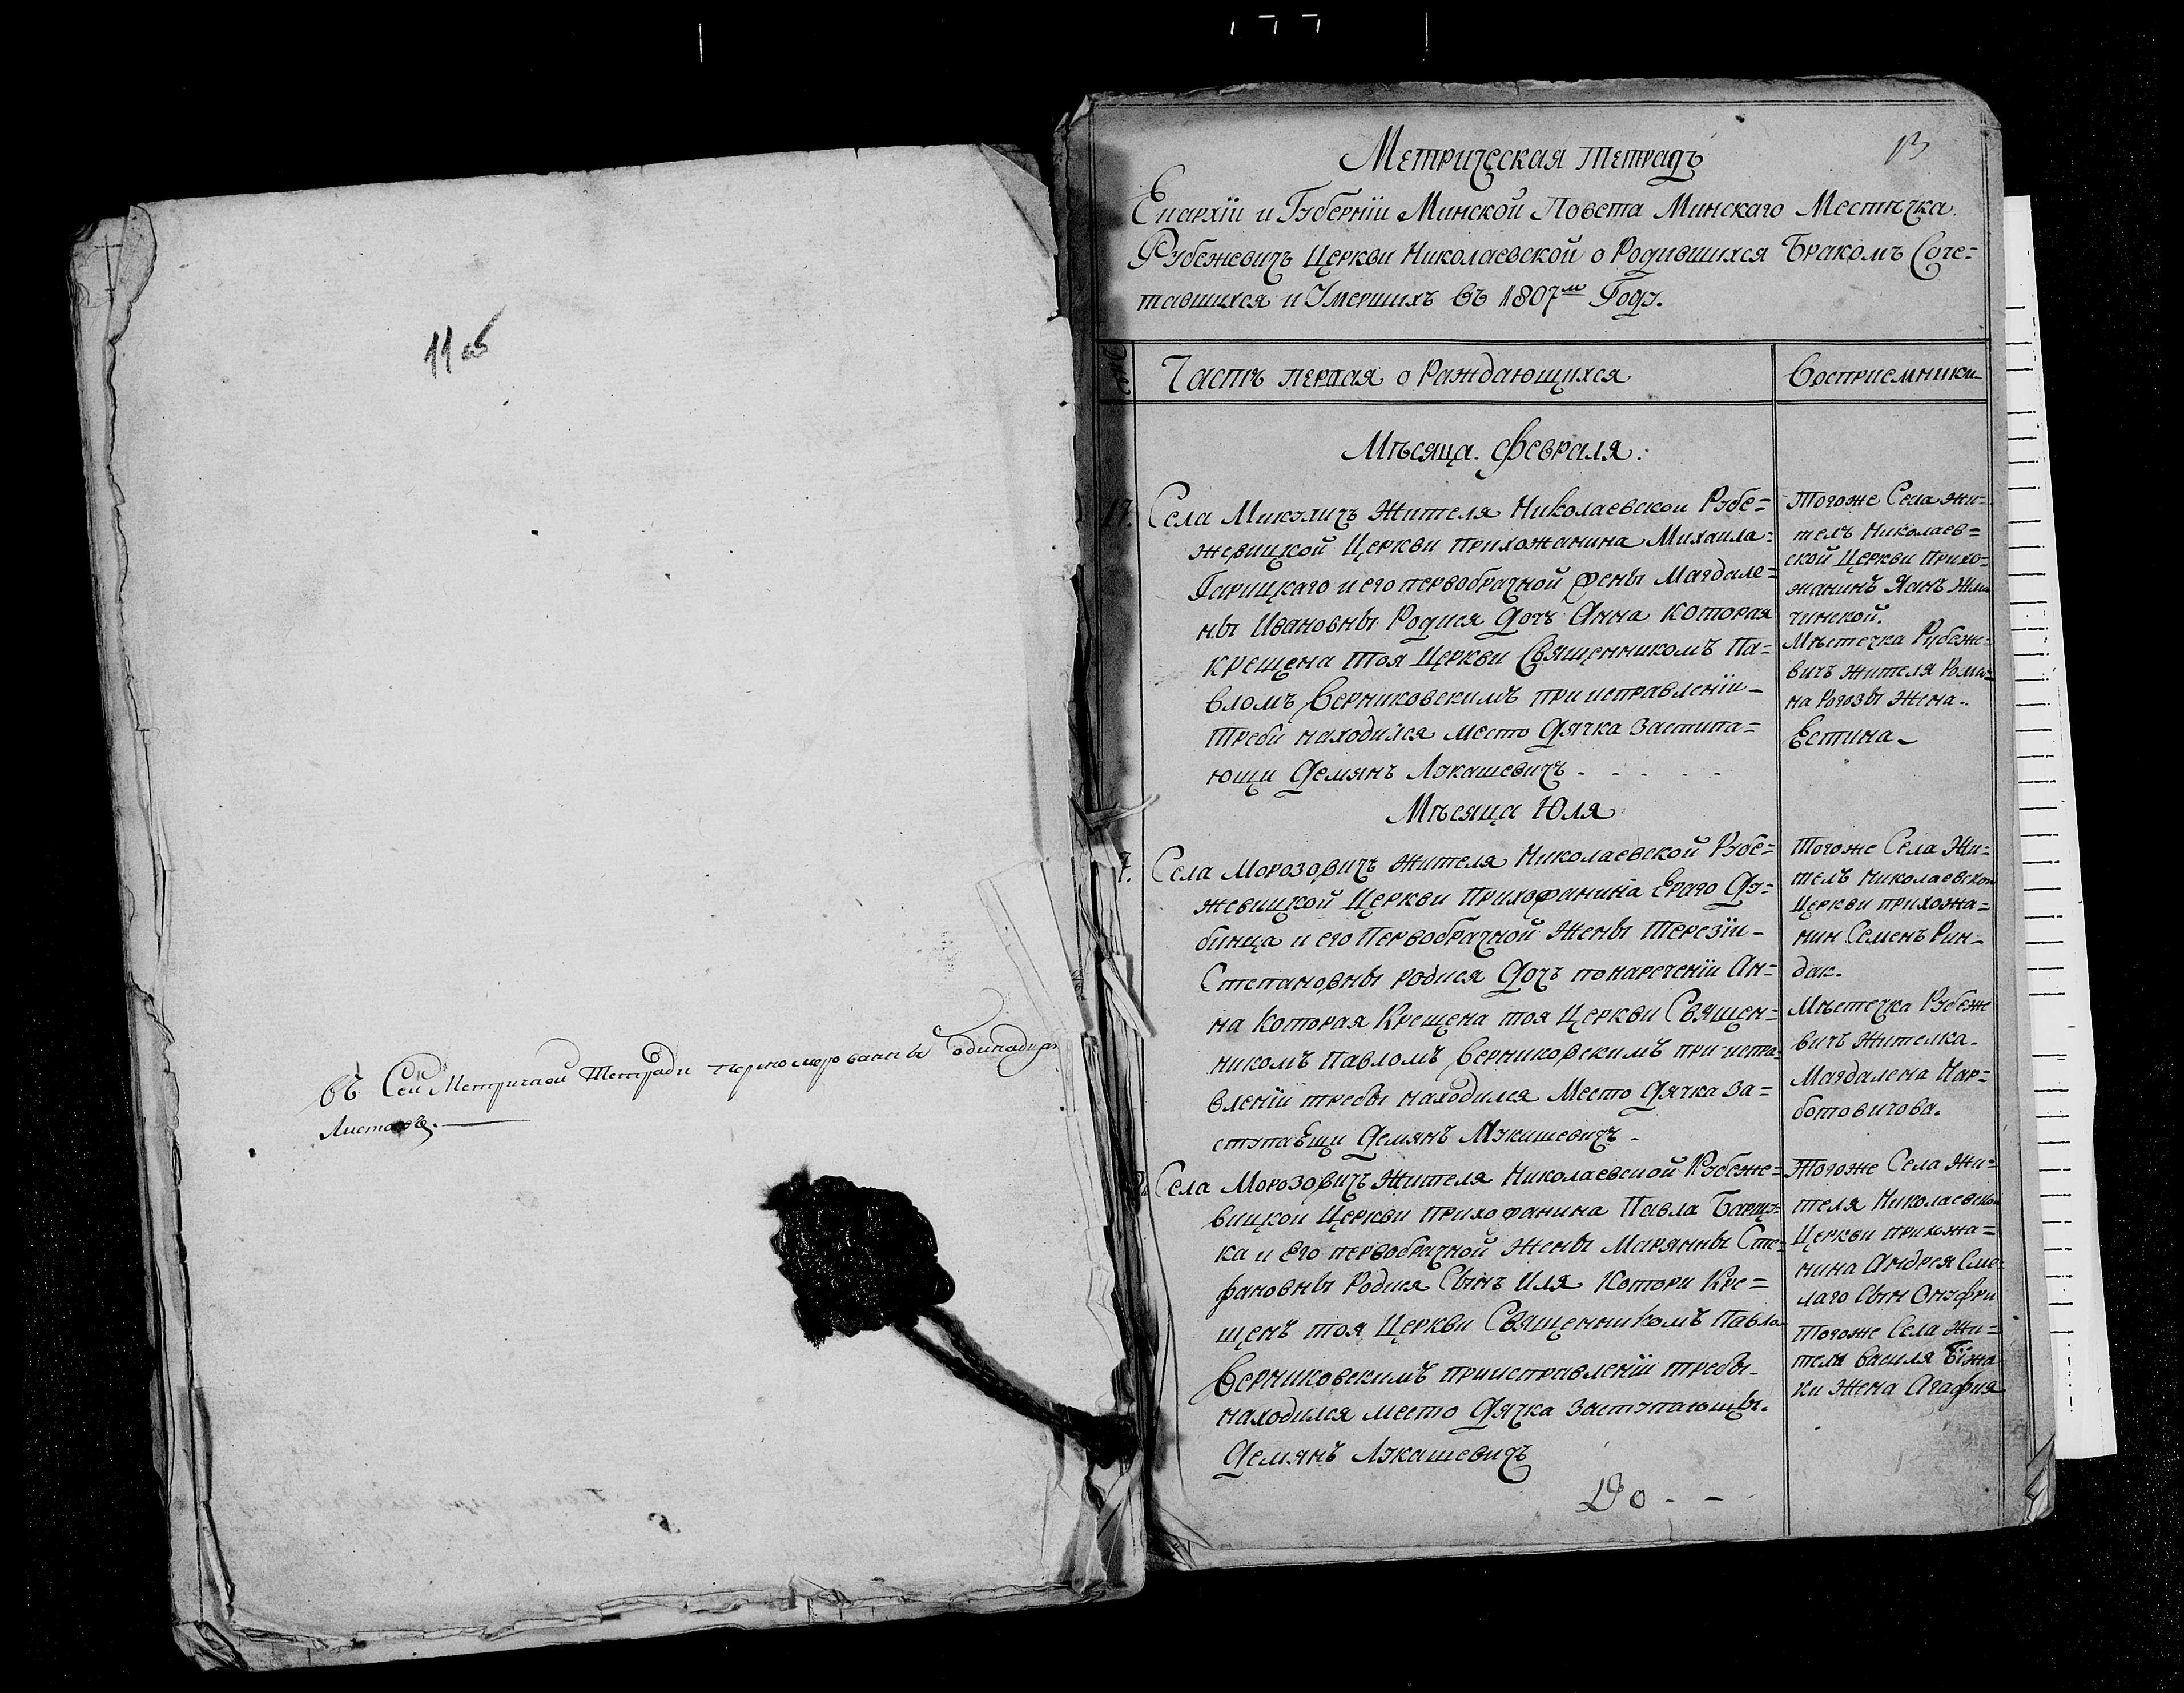 11 об
Въ Сей Метричной Тетради перенумерованны одинадцать
Листовъ.
13
Метрическая тетрадъ
Епархіи и Губерніи Минской Повета Минскаго Местечка
Рубежевичъ Церкви Николаевской о Родившихся Бракомъ Соче=
тавшихся и Умершихъ въ 1807м Году.
Частъ первая о Раждающихся
Восприемники
Мѣсяца. Февраля.
17. Села Микуличъ Жителя Николаевской Рубе=
жевицкой Церкви прихожанина Михаила
Гарицкаго и его первобрачной жены Магдале=
ны Ивановны Родися Дочъ Анна которая
крещена тоя Церкви Священникомъ Па=
вломъ Верниковскимъ приисправленіи
Треби находился место Дячка заступа=
ющи Демянъ Лукашевичъ
Тогоже Села жи=
телъ Николаев=
ской Церкви прихо=
жанинъ Янъ
чинской.
Мѣстечка Рубеже=
вичъ жителя Рома=
на Рогозы жена
Естина
Мѣсяца Юля
7. Села Морозовичъ жителя Николаевской Рубе=
жевицкой Церкви прихожанина Ераго Ду=
бинца и его Первобрачной Жены Терезіи
Степановны родися Дочъ понаречении Ан=
на Которая Крещена тоя Церкви Священ=
никомъ Павломъ Верниковскимъ приспра
вленіи требы находился Место Дячка за=
ступаещи Демянъ Лукашевичъ
Тогоже Села Жи=
телъ Николаевской
Церкви прихожа=
нин Семенъ Рин=
дак.
Мѣстечка Рубеже
вичъ Жителка
Магдалена Нар=
ботовичова.
Села Морозовичъ Жителя Николаевской Рубеже=
вицкои Церкви прихожанина Павла
ка и Его первобрачной Жены Марянны Сте=
фановны Родися Сынъ Иля Котори Кре=
щенъ тоя Церкви Священникомъ Павло
Верниковскимъ приисправленіи требы
находился место Дячка заступающы.
Демянъ Лукашевичъ
Тогоже Села Жи=
теля Николаевской
Церкви прихжа=
нина Андрея Сме
лаго Сын Онуфри
Тогоже Села Жи=
теля Василя
ки Жена Агафия
До - -